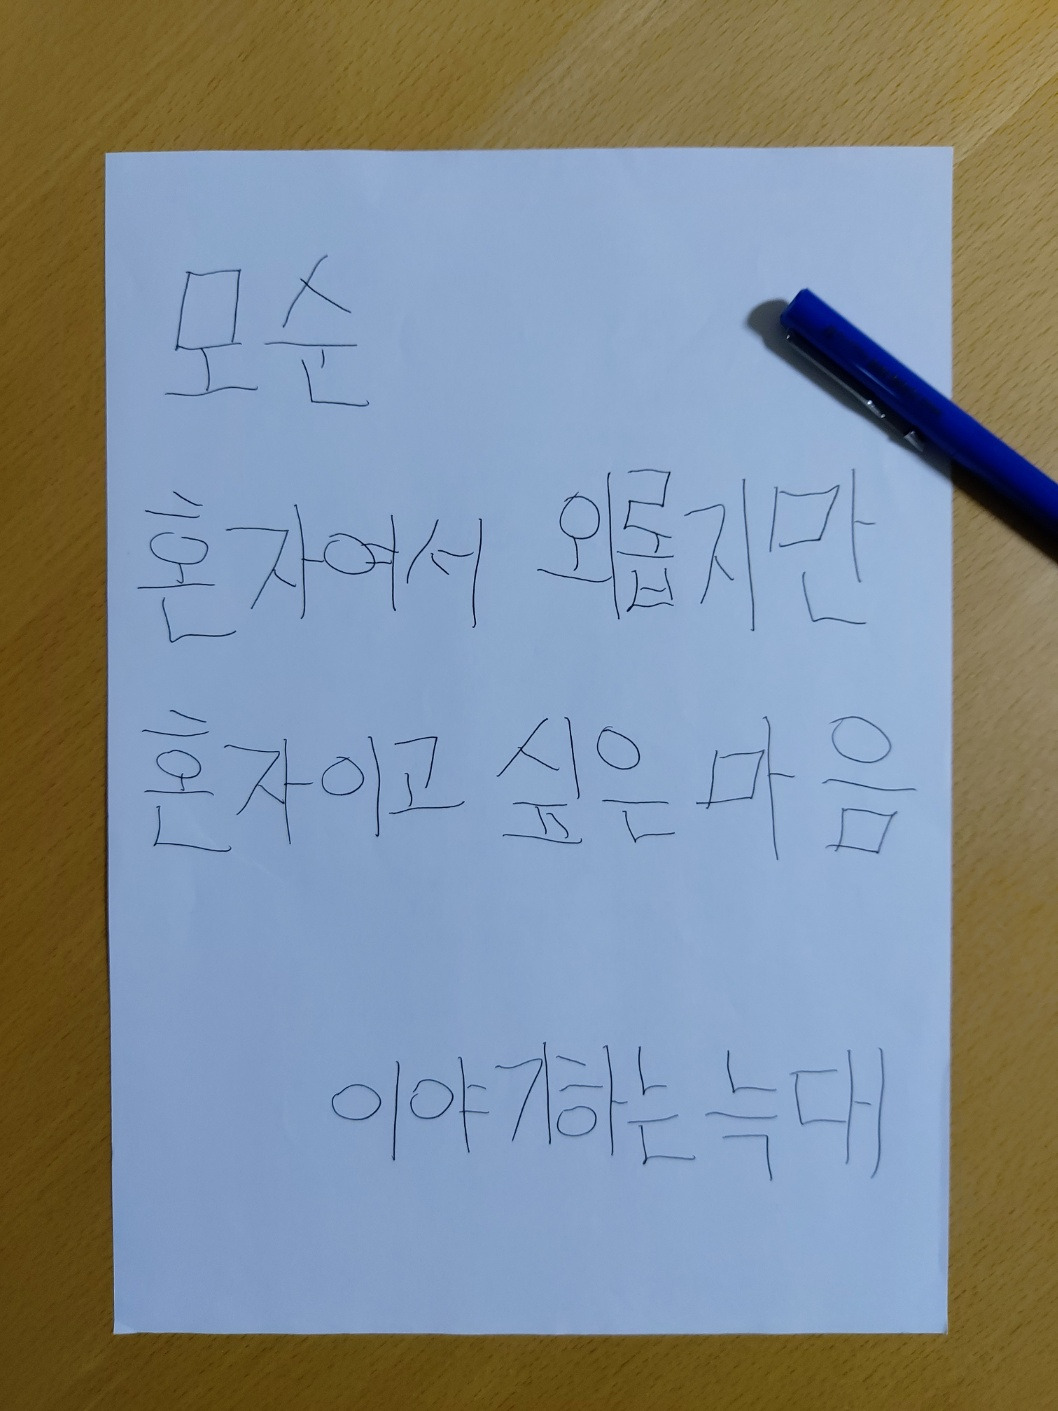 모순
혼자여서 외롭지만
혼자이고 싶은 마음
이야기하는 늑대